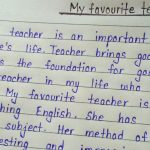 My favourite te
teacher is an important
's life. Teacher brings good
s the foundation for goo
teacher in my life who
My favourite teacher is
hing English. She has
subject. Her method of
esting and